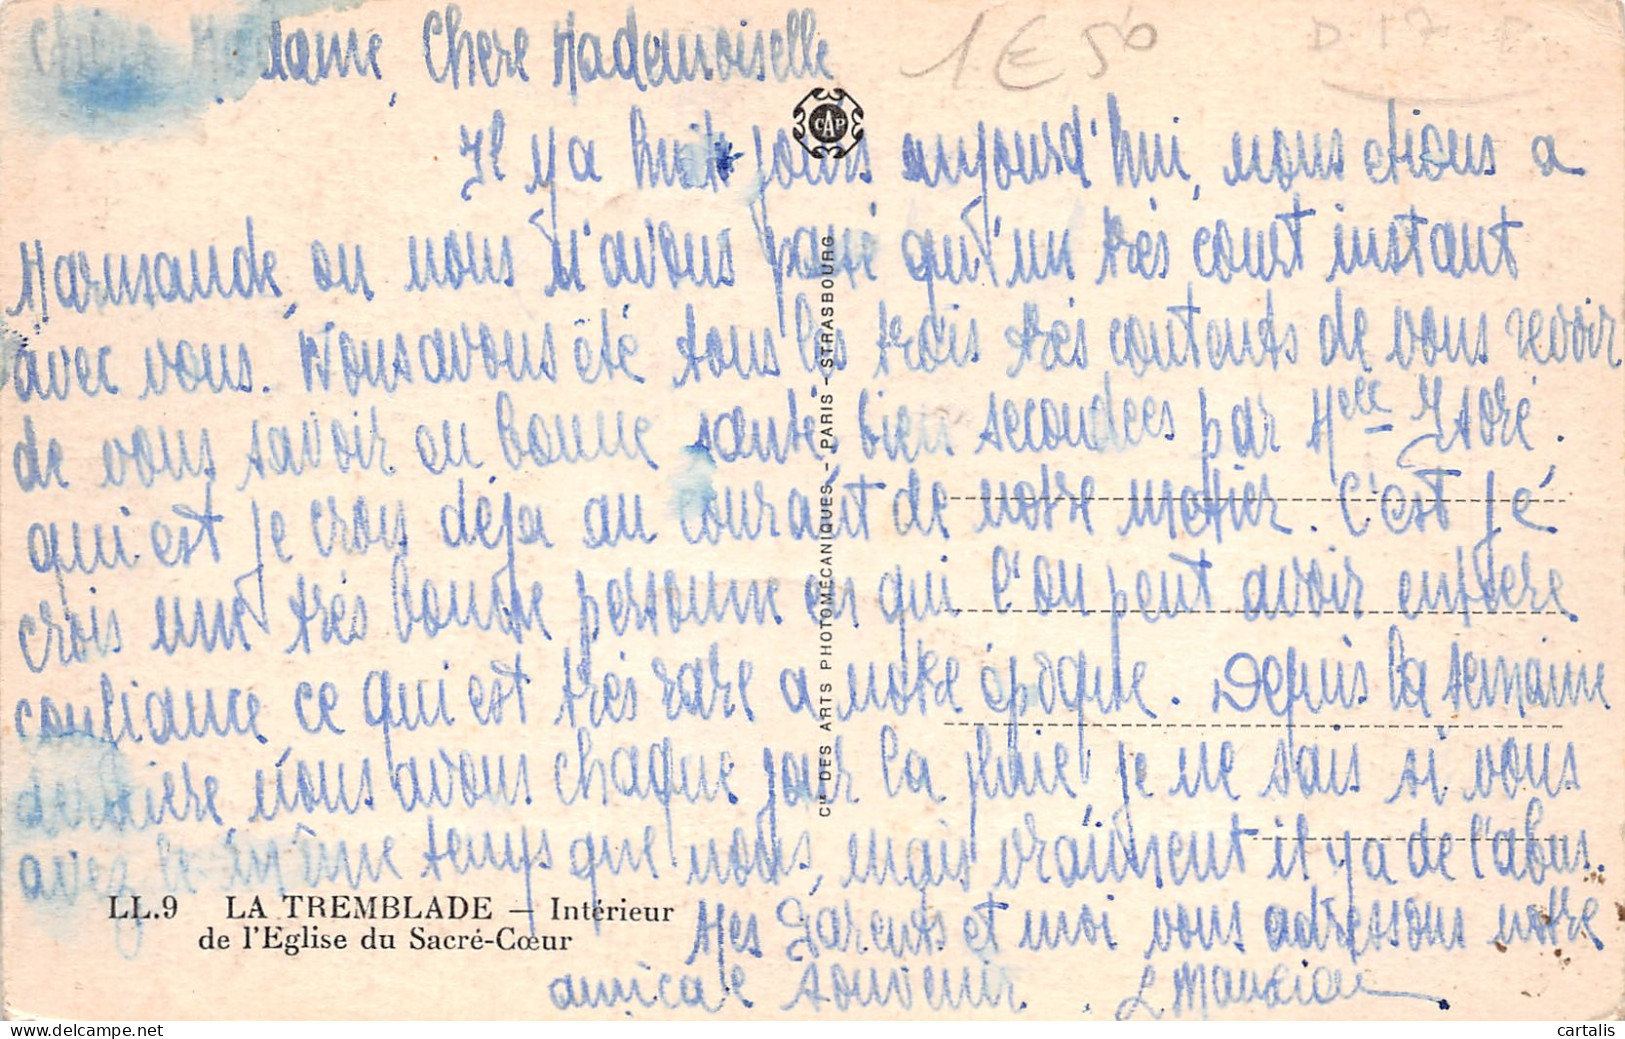 Chère Madame, Chere Mademoiselle
1 E 50
D 17
CAP
Il y a huit jours aujourd'hui, nous etions a
Marmande, ou nous n'avons passé qu'un très court instant
avec vous. Nous avons été tous les trois très contents de vous revoir
de vous savoir en bonne santé, bien secondées par Melle
qui est je crois déja au courant de notre metier. C'est je
crois une très bonne personne en qui l'on peut avoir entiere
confiance ce qui est très rare a notre époque. Depuis la semaine
derniere nous avons chaque jour la pluie, je ne sais si vous
avez le même temps que nous, mais vraiment il y a de l'abus.
Mes Parents et moi vous adressons notre
amicale souvenir.
CIE DES ARTS PHOTOMÉCANIQUES - PARIS - STRASBOURG
LL.9 LA TREMBLADE — Intérieur
de l'Eglise du Sacré-Cœur
cartalis